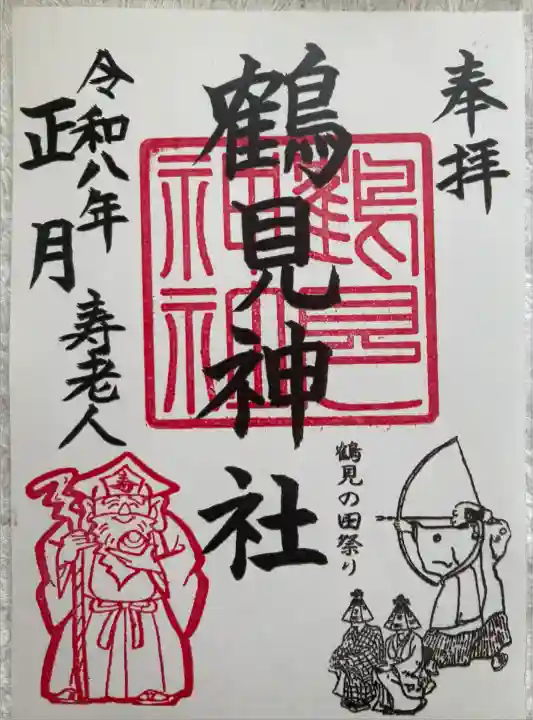 奉拝
鶴見神社
鶴見の田祭り
令和八年
正月
寿老人
鶴見
神社
寿